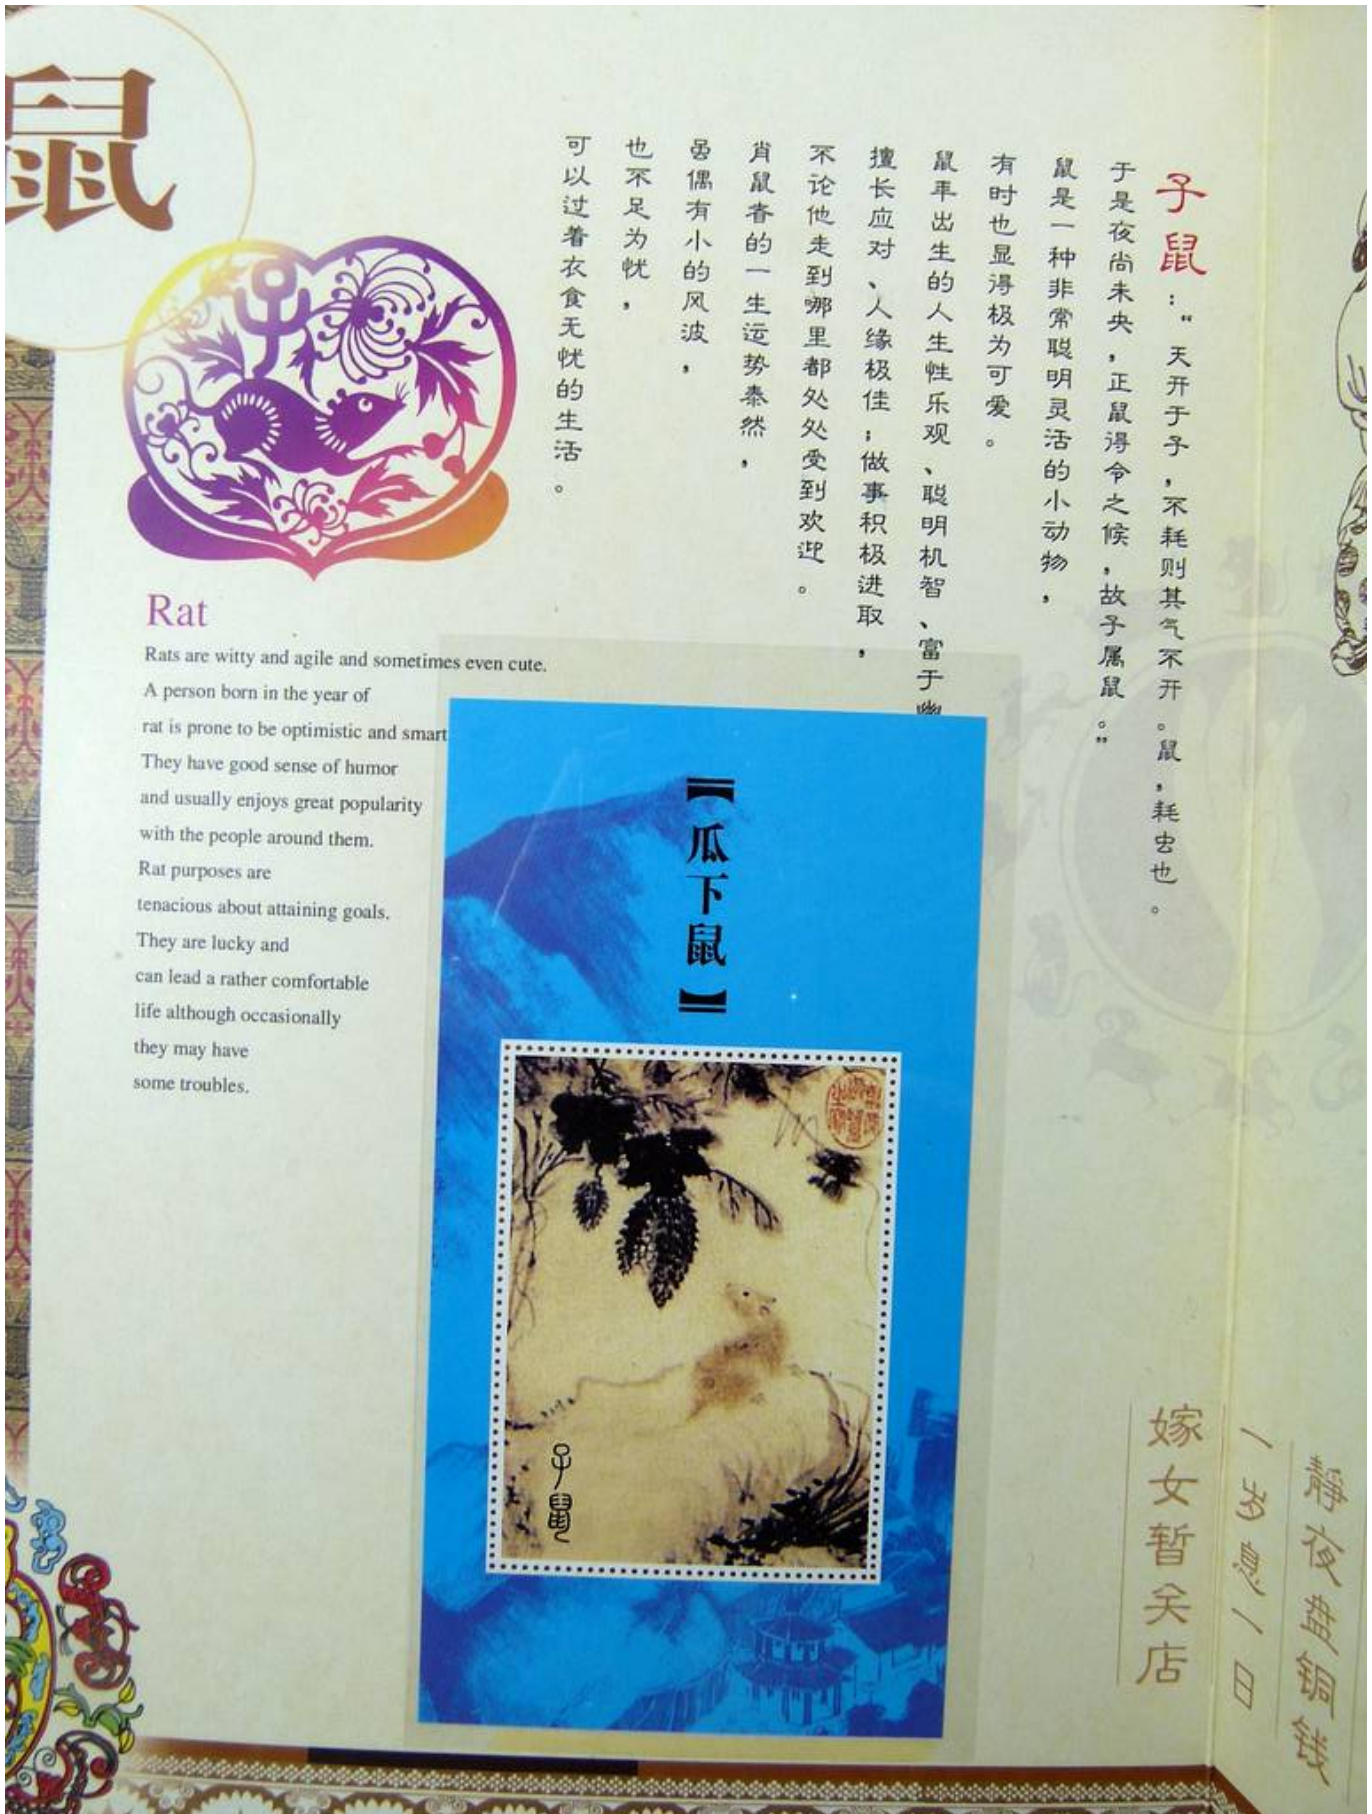 鼠
子鼠：“天开于子，不耗则其气不开。鼠，耗虫也。
于是夜尚未央，正鼠得令之候，故子属鼠。”
鼠是一种非常聪明灵活的小动物，
有时也显得极为可爱。
鼠年出生的人生性乐观、聪明机智、富于
擅长应对、人缘极佳；做事积极进取，
不论他走到哪里都处处受到欢迎。
肖鼠者的一生运势泰然，
虽偶有小的风波，
也不足为忧，
可以过着衣食无忧的生活。
Rat
Rats are witty and agile and sometimes even cute.
A person born in the year of
rat is prone to be optimistic and smart
They have good sense of humor
and usually enjoys great popularity
with the people around them.
Rat purposes are
tenacious about attaining goals.
They are lucky and
can lead a rather comfortable
life although occasionally
they may have
some troubles.
【瓜下鼠】
子鼠
静夜盘铜钱
一岁息一日
嫁女暂关店